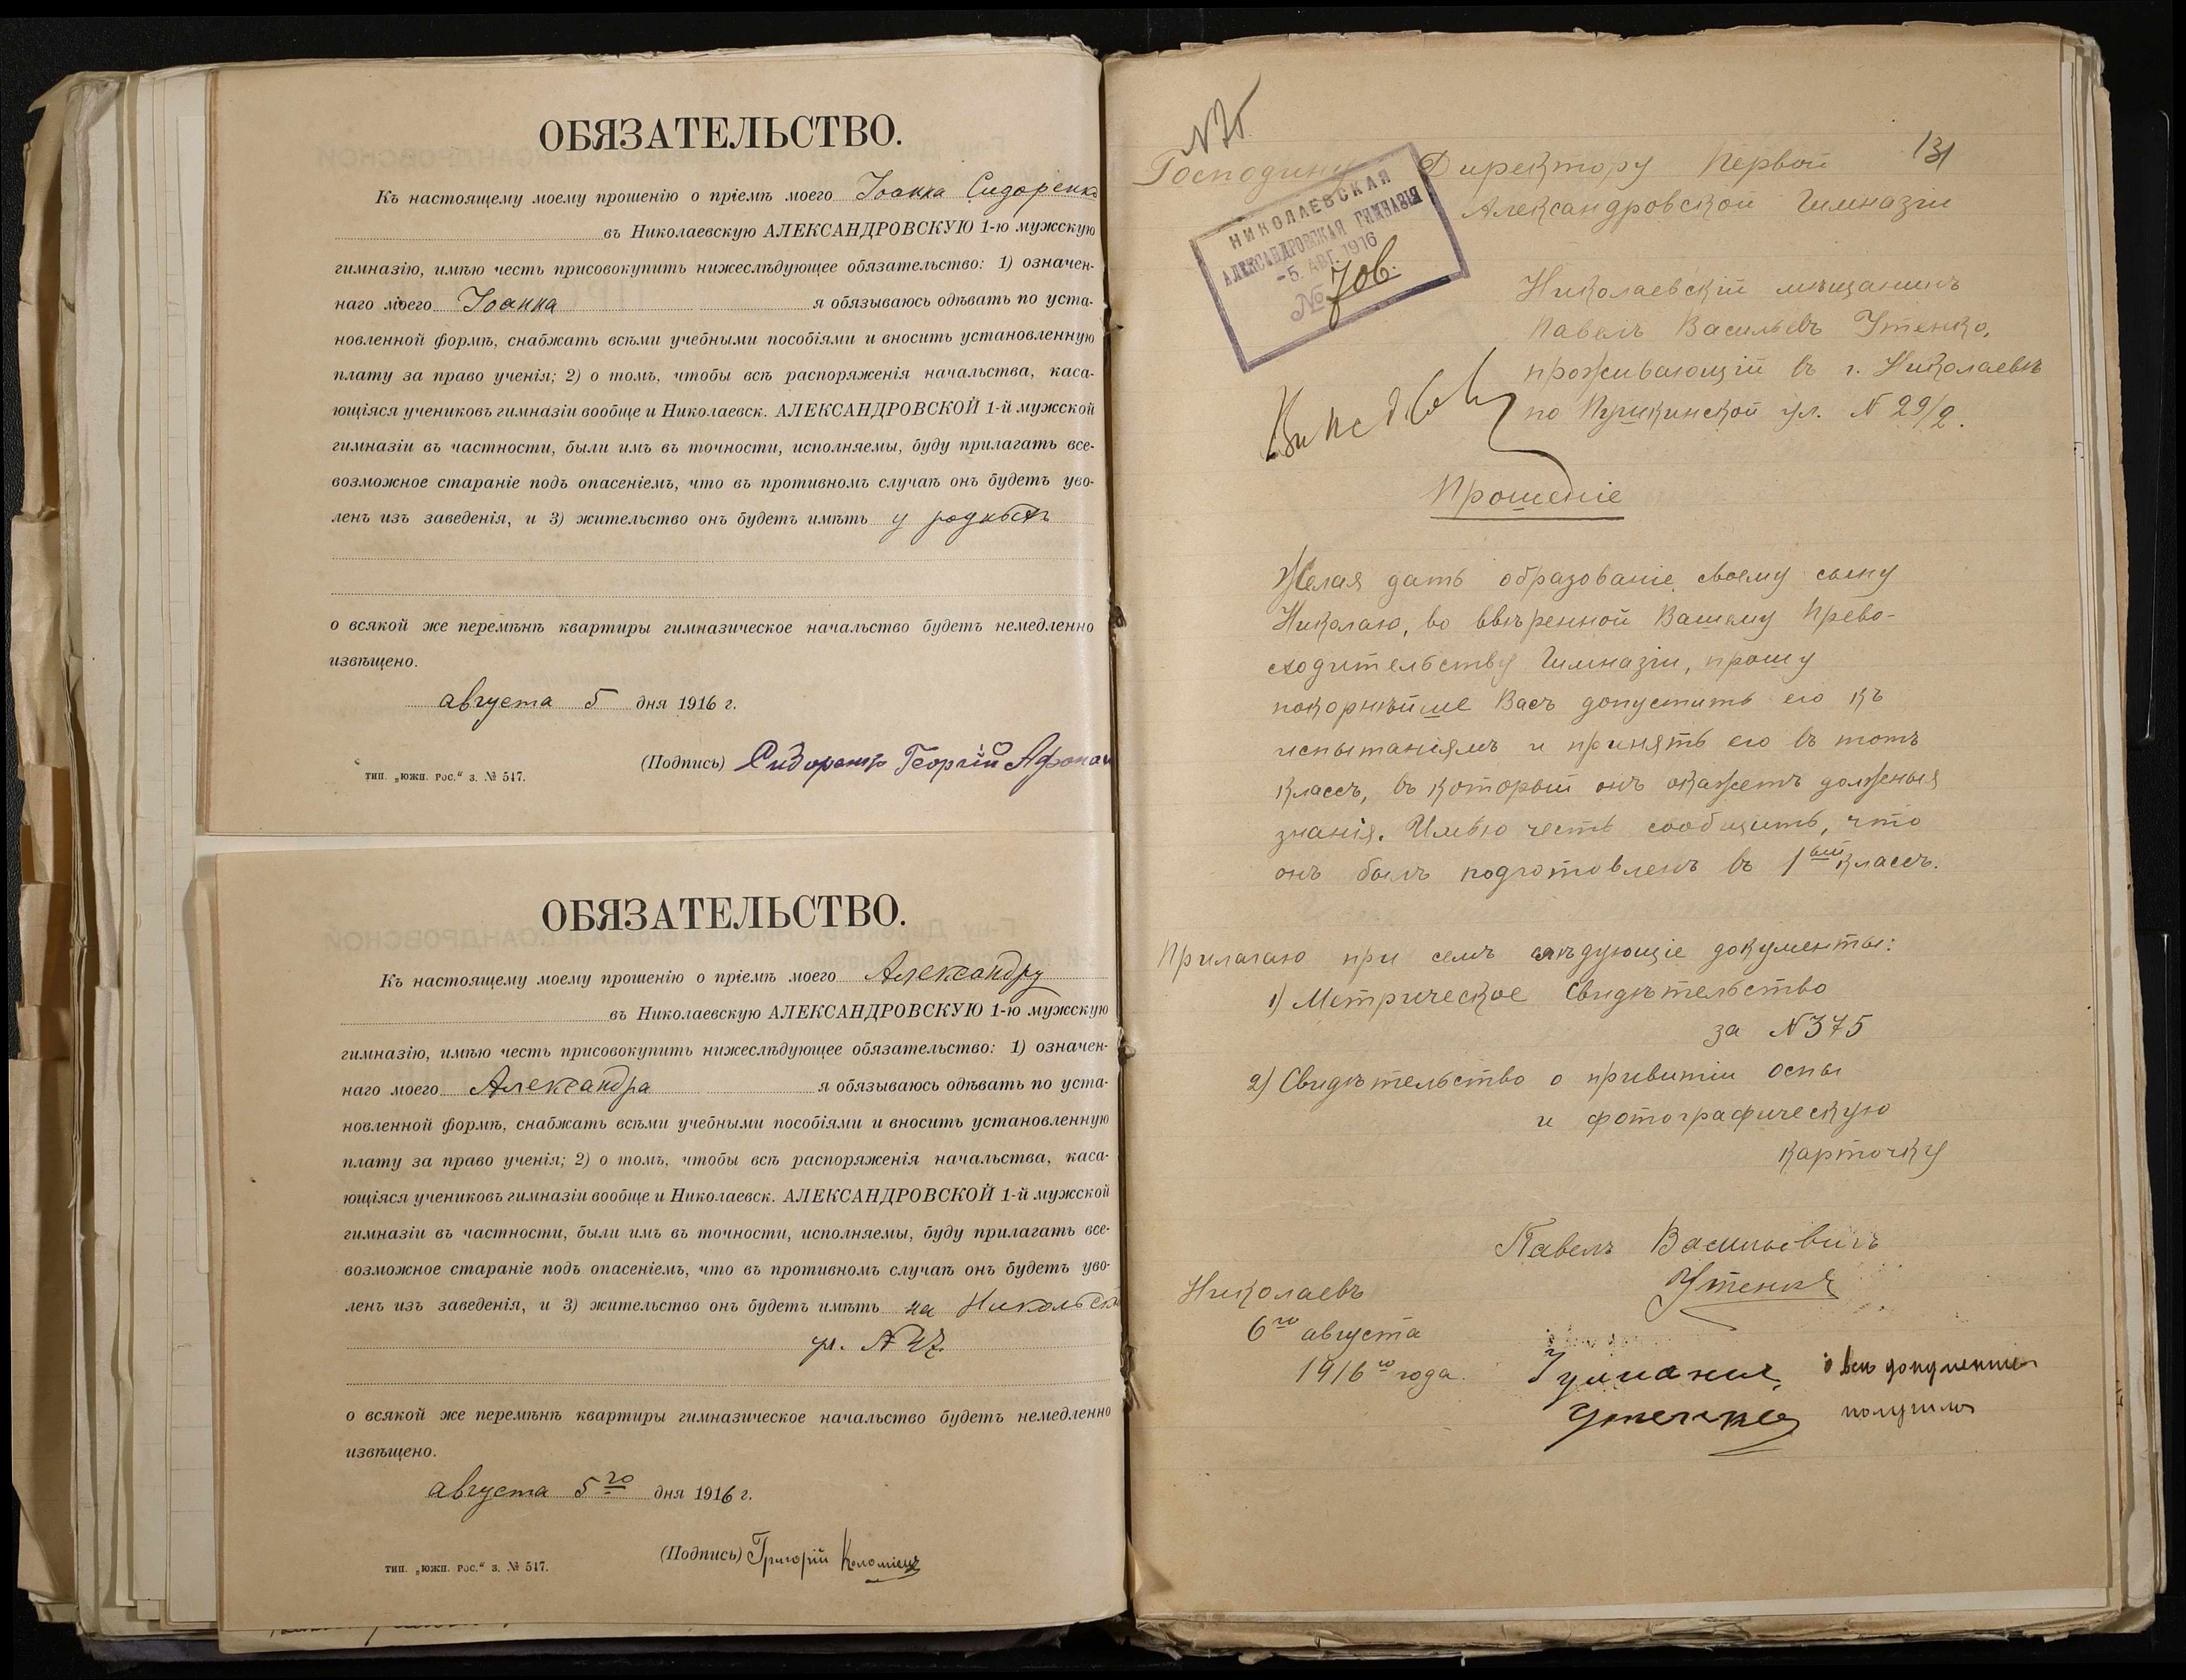 ОБЯЗАТЕЛЬСТВО.
Къ настоящему моему прошенію о пріемѣ моего Іоанна Сидоренко
въ Николаевскую АЛЕКСАНДРОВСКУЮ 1-ю мужскую
гимназію, имѣю честь присовокупить нижеслѣдующее обязательство: 1) означен-
наго моего Іоанна я обязываюсь одѣвать по уста-
новленной формѣ, снабжать всѣми учебными пособіями и вносить установленную
плату за право ученія; 2) о томъ, чтобы всѣ распоряженія начальства, каса-
ющіяся учениковъ гимназіи вообще и Николаевск. АЛЕКСАНДРОВСКОЙ 1-й мужской
гимназіи въ частности, были имъ въ точности, исполняемы, буду прилагать все-
возможное стараніе подъ опасеніемъ, что въ противномъ случаѣ онъ будетъ уво-
ленъ изъ заведенія, и 3) жительство онъ будетъ имѣть у родныхъ
о всякой же перемѣнѣ квартиры гимназическое начальство будетъ немедленно
извѣщено.
августа 5 дня 1916 г.
(Подпись) Сидоренко Георгій Афонас
тип. „южн. рос.“ з. № 547.
ОБЯЗАТЕЛЬСТВО.
Къ настоящему моему прошенію о пріемѣ моего Александру
въ Николаевскую АЛЕКСАНДРОВСКУЮ 1-ю мужскую
гимназію, имѣю честь присовокупить нижеслѣдующее обязательство: 1) означен-
наго моего Александра я обязываюсь одѣвать по уста-
новленной формѣ, снабжать всѣми учебными пособіями и вносить установленную
плату за право ученія; 2) о томъ, чтобы всѣ распоряженія начальства, каса-
ющіяся учениковъ гимназіи вообще и Николаевск. АЛЕКСАНДРОВСКОЙ 1-й мужской
гимназіи въ частности, были имъ въ точности, исполняемы, буду прилагать все-
возможное стараніе подъ опасеніемъ, что въ противномъ случаѣ онъ будетъ уво-
ленъ изъ заведенія, и 3) жительство онъ будетъ имѣть на Никольск
ул. № 47.
о всякой же перемѣнѣ квартиры гимназическое начальство будетъ немедленно
извѣщено.
августа 5го дня 1916 г.
(Подпись) Григорій Коломіецъ
тип. „южн. рос.“ з. № 547.
131
Господину Директору Первой
Александровской Гимназіи
НИКОЛАЕВСКАЯ
АЛЕКСАНДРОВСКАЯ ГИМНАЗІЯ
-5. АВГ. 1916
№ 706.
Николаевскій мѣщанинъ
Павелъ Васильевъ Утенко,
проживающій въ г. Николаевѣ
по Пушкинской ул. № 29/2.
Прошеніе
Желая дать образованіе своему сыну
Николаю, во ввѣренной Вашему Прево-
сходительству Гимназіи, прошу
покорнѣйше Васъ допустить его къ
испытаніямъ и принять его въ тотъ
классъ, въ который онъ окажетъ должныя
знанія. Имѣю честь сообщить, что
онъ былъ подготовленъ въ 1ый классъ.
Прилагаю при семъ слѣдующіе документы:
1) Метрическое Свидѣтельство
за № 375
2) Свидѣтельство о привитіи оспы
и фотографическую
карточку
Павелъ Васильевичъ
Утенко
Николаевъ
6го августа
1916го года.
всѣ документы
Утенко получила